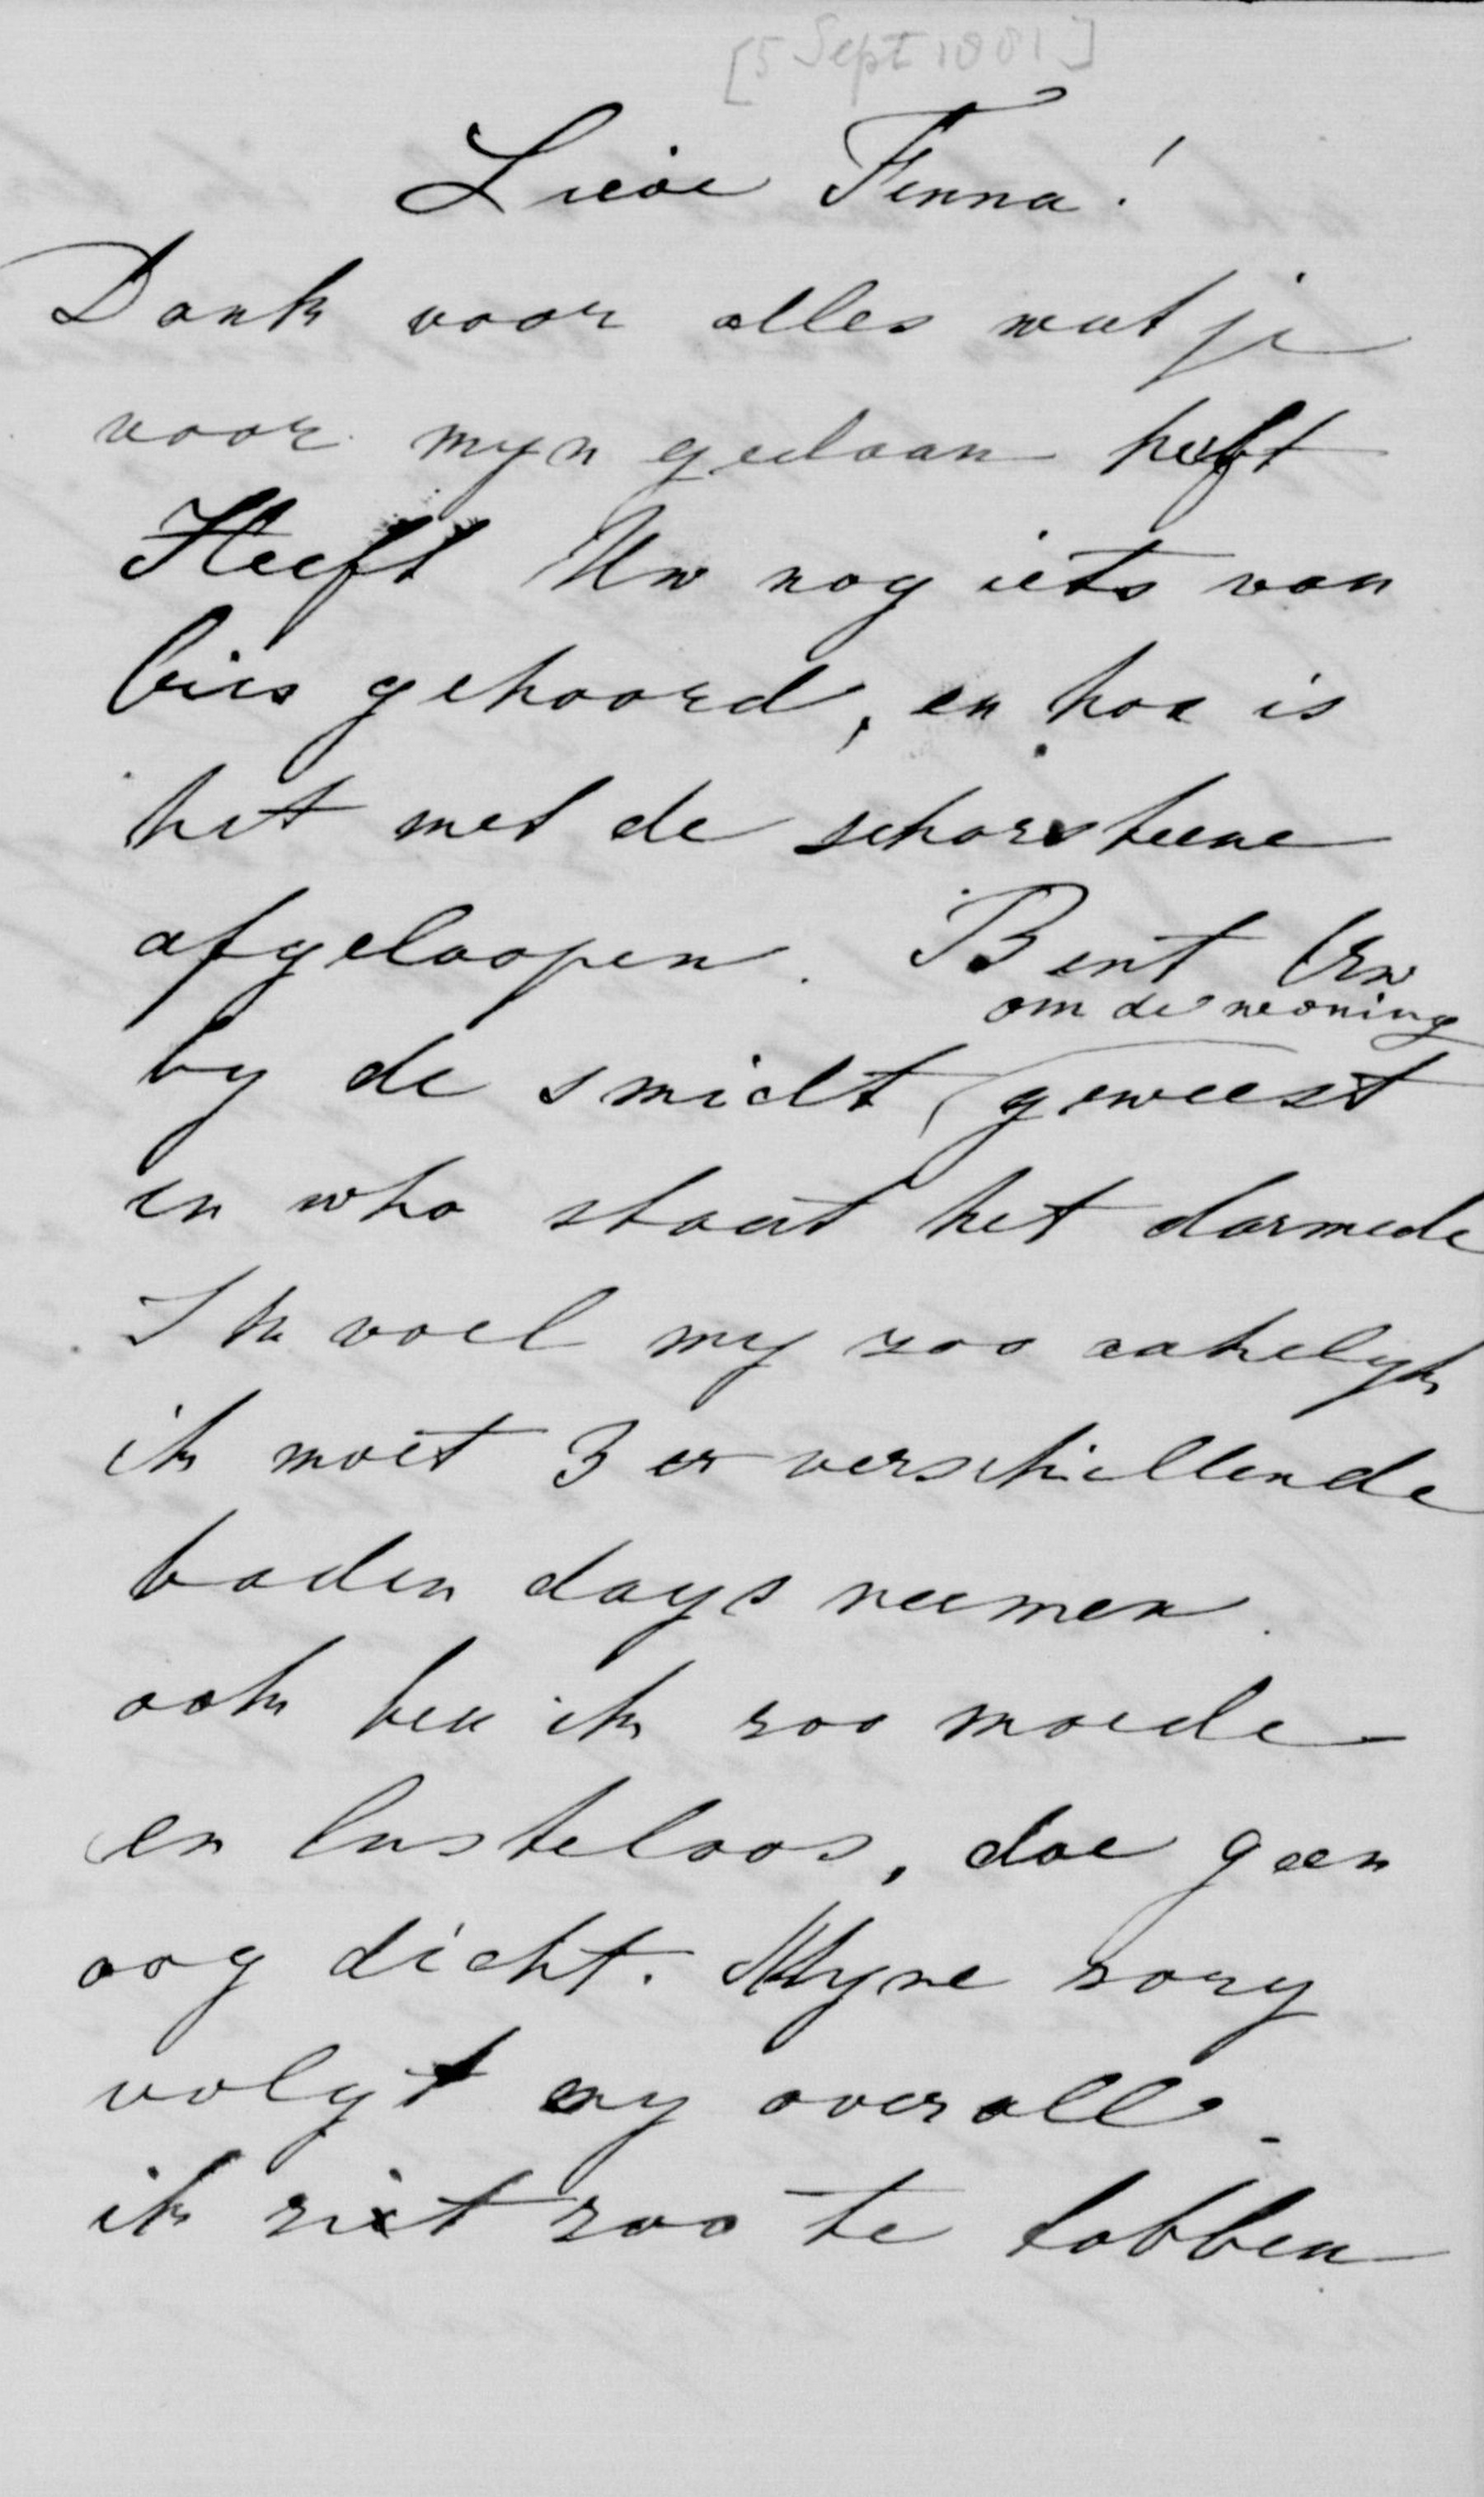 [5 Sept 1881]
Lieve Fenna!
Dank voor alles wat je
voor myn gedaan heeft
Heeft Uw nog iets van
gehoord, en hoe is
het met de schorsteene
afgeloopen. Bent Uw
om de woning
by de smidt, geweest
en who staat het darmede
Ik voel my zoo akelyk
ik moet 3 er verschillende
baden dags neemen.
ook ben ik zoo moede
en lusteloos, doe geen
oog dicht. Myne zorg
volgt my overall.
ik zit zoo te tobben